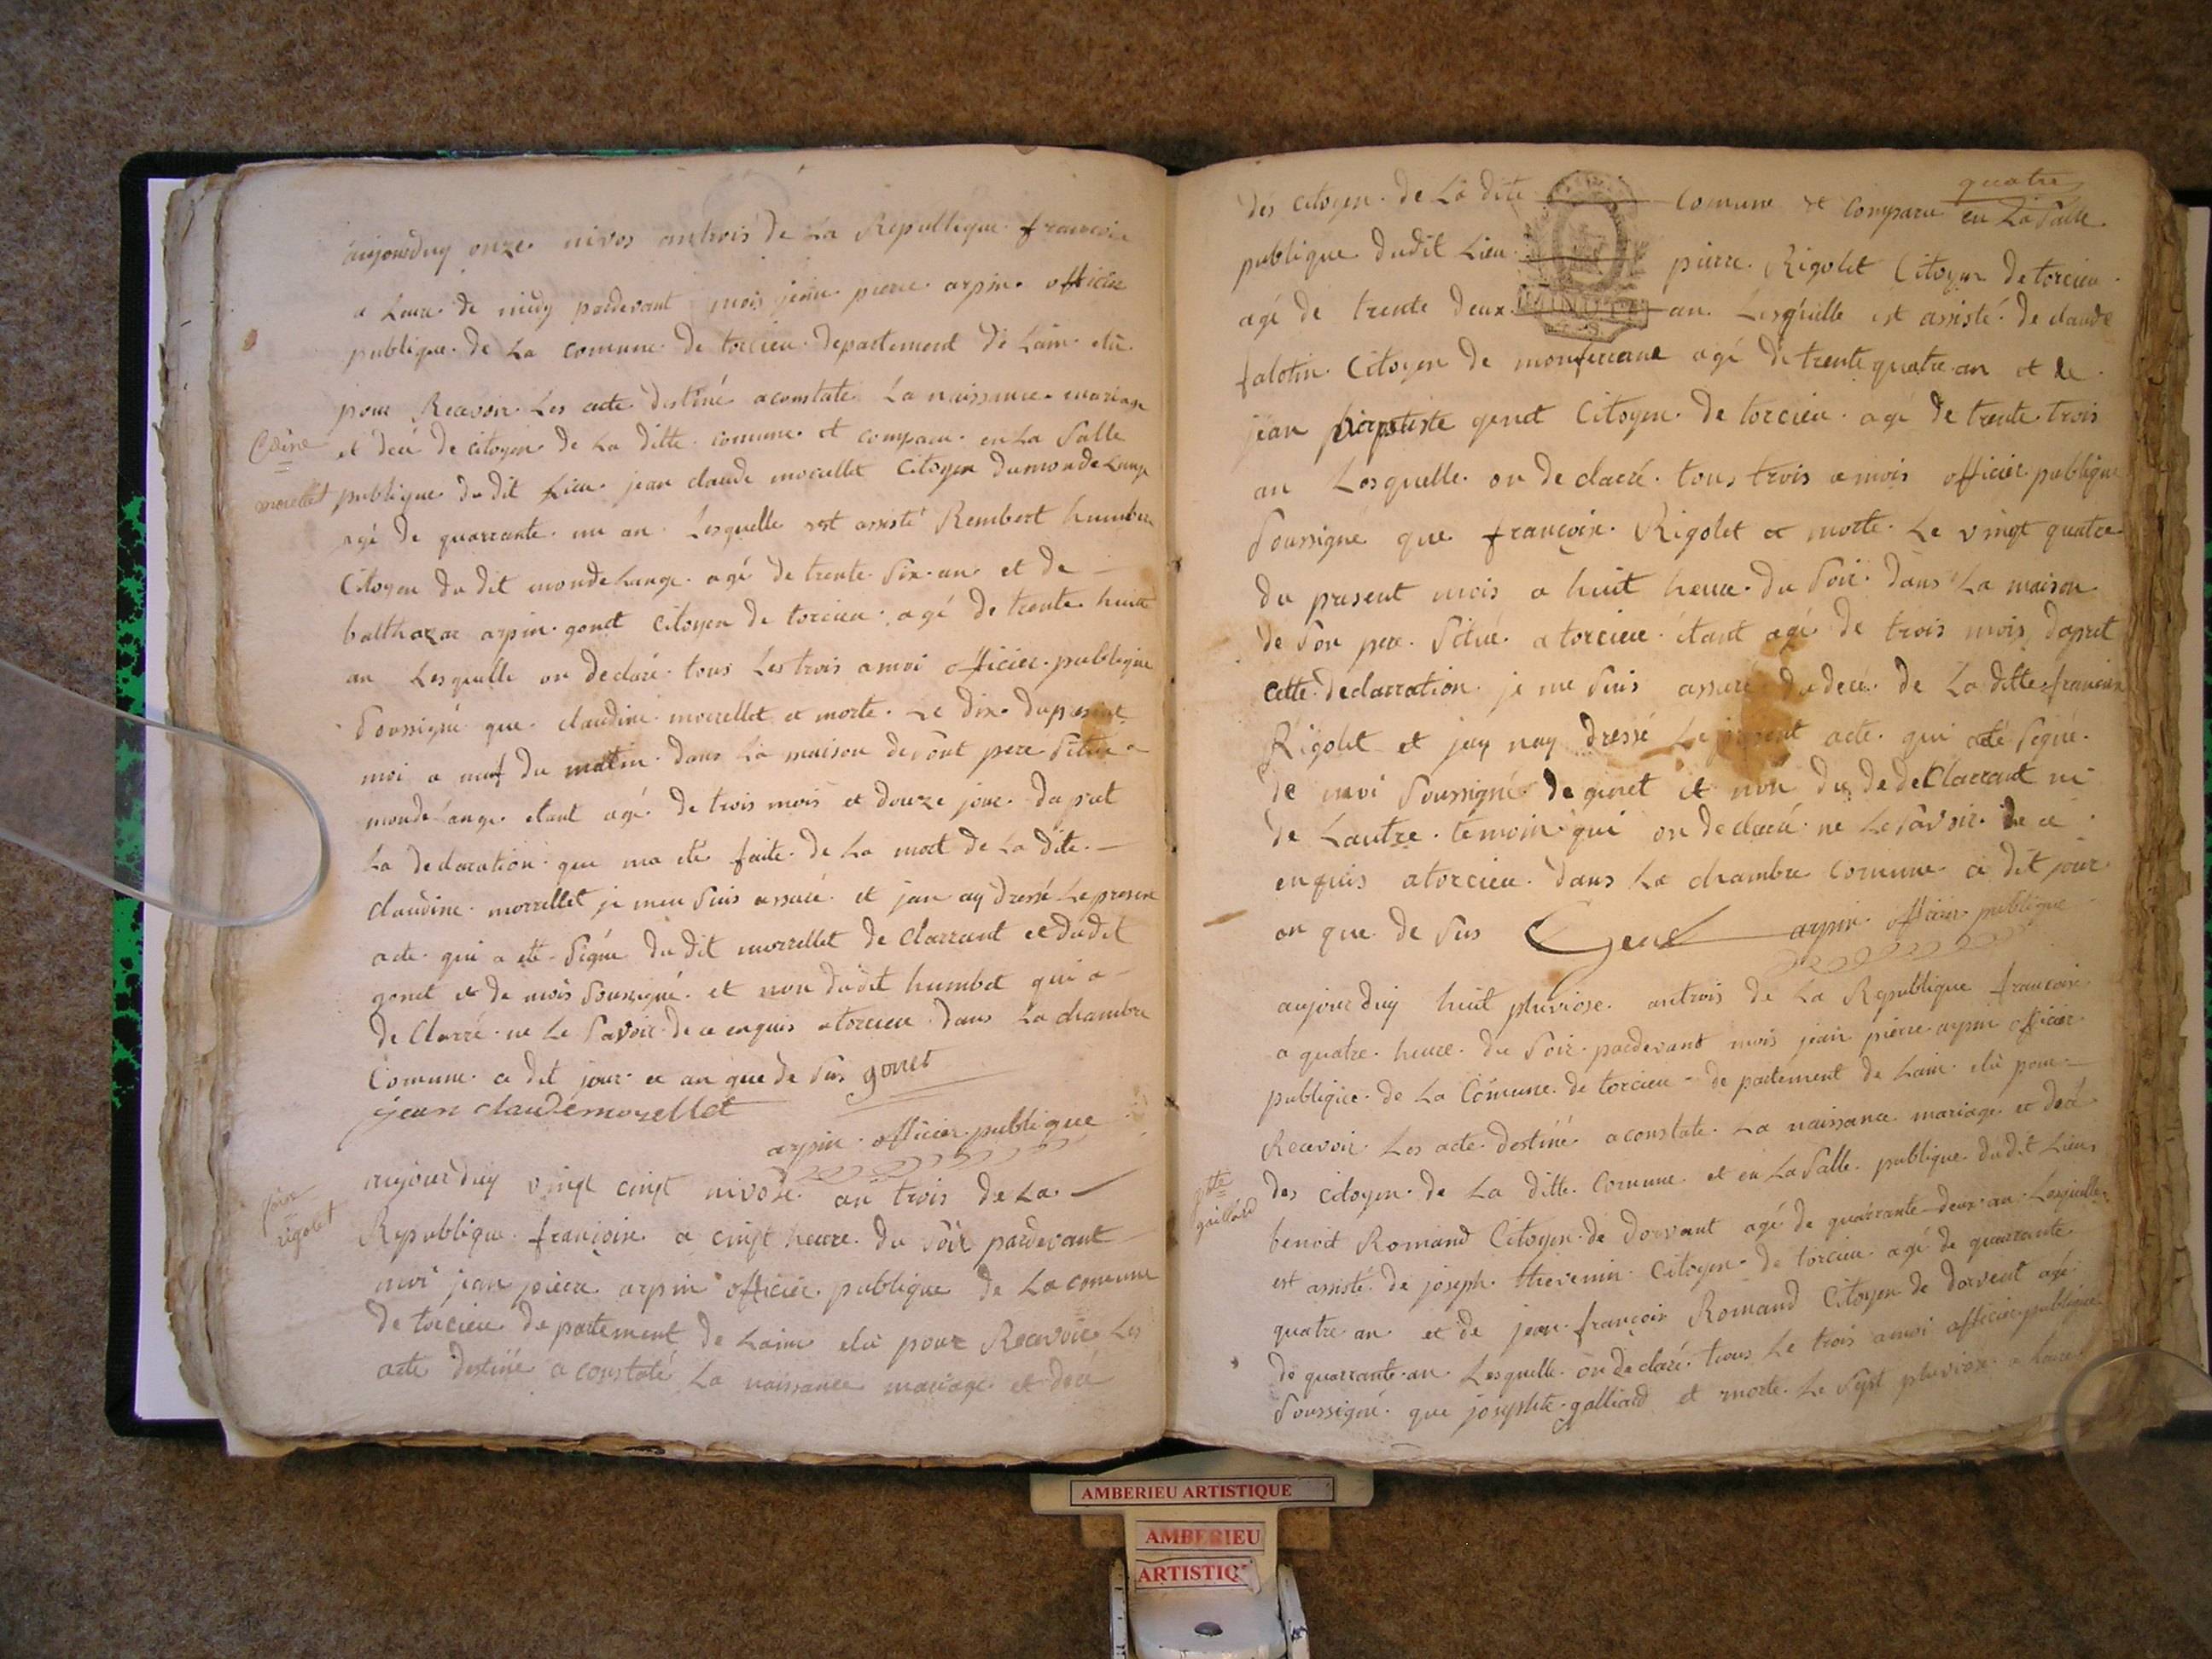 aujourduy onze nivos antrois de La Republique francoise
a heure de midy pardevant mois jean pierre arpin officier
publique de La comune de torcieu departement de Lain elü
pour Recevoir Les acte destiné aconstate La naissance mariage
et decé de citoyen de La ditte comune et comparu en La Salle
Cdine
morellet
publique du dit Lieu jean claude morellet Citoyen de mondelange
agé de quarrante un an Lesquelle est assisté Rembert humber
Citoyen du dit mondelange agé de trente Six an et de
balthazar arpin gonet Citoyen de torcieu agé de trente huit
an Lesquelle on declaré tous Les trois amoi officier publique
Soussigné que claudine morellet et morte Le dix du present
moi a neuf du matin dans La maison de Sont pere Situe a
mondélange etant agé de trois mois et douze jour daprest
La declaration que ma eté faite de La mort de La dite
claudine morrellet je men Suis assuré et jan ay dressé Le present
acte qui a eté Signé du dit morrellet de Clarrant et du dit
gonet et de mois Soussigné et non du dit humbet qui a
de Clarré ne Le Savoir de ce enquis a torcieu dans La chambre
Comune ce dit jour et an que de Sus gonet
jean claude morellet
arpin officier publique
fçoise
rigolet
aujourduy vingt cinq nivose an trois de La
Republique françoise a cinqt heure du Soir pardevant
moi jean pierre arpin officier publique de La comune
de torcieu de partement de Lain elü pour Recevoir Les
acte destiné a constaté La naissance mariage et decé
des citoyen de La dite comune et comparu en La Salle
quatre
publique dudit Lieu pierre Rigolet Citoyen de torcieu
agé de trente deux an Lesquelle est assisté de claude
falotin Citoyen de monferrane agé de trente quatre an et de
jean baptiste genet Citoyen de torcieu agé de trente trois
an Lesquelle on declaré tous trois a mois officier publique
Soussigné que françoise Rigolet et morte Le vingt quatre
du present mois a huit heure du Soir dans La maison
de Son pere Situé a torcieu étant agé de trois mois daprest
cette declarration je me Suis assuré du decé de La ditte francoise
Rigolet et jay nay dressé Le present acte qui a eté Signé
de moi Soussigné de genet et non du de declarrant ni
de Lautre témoin qui on declaré ne Le Savoir de ce
enquis a torcieu dans La chambre Comune ce dit jour
an que de Sus Genet arpin officier publique
aujourduy huit pluviose antrois de La Republique francoise
a quatre heure du Soir pardevant mois jean pierre arpin officier
publique de La Comune de torcieu de partement de Lain elü pour
Recevoir Les acte destiné a constate La naissance mariage et decé
des citoyen de La ditte Comune et en La Salle publique dudit Lieu
jhte
gaillard
benoit Romand Citoyen de dorvant agé de quarrante deux an Lesquelle
est assisté de joseph thevenin Citoyen de torcieu agé de quarrante
quatre an et de jean françois Romand Citoyen de dorvent agé
de quarrante an Lesquelle on declaré tous Le trois amoi officier publique
Soussigné que josephte galliard et morte Le Sept pluviose a heure
AMBERIEU ARTISTIQUE
AMBERIEU
ARTISTIQ